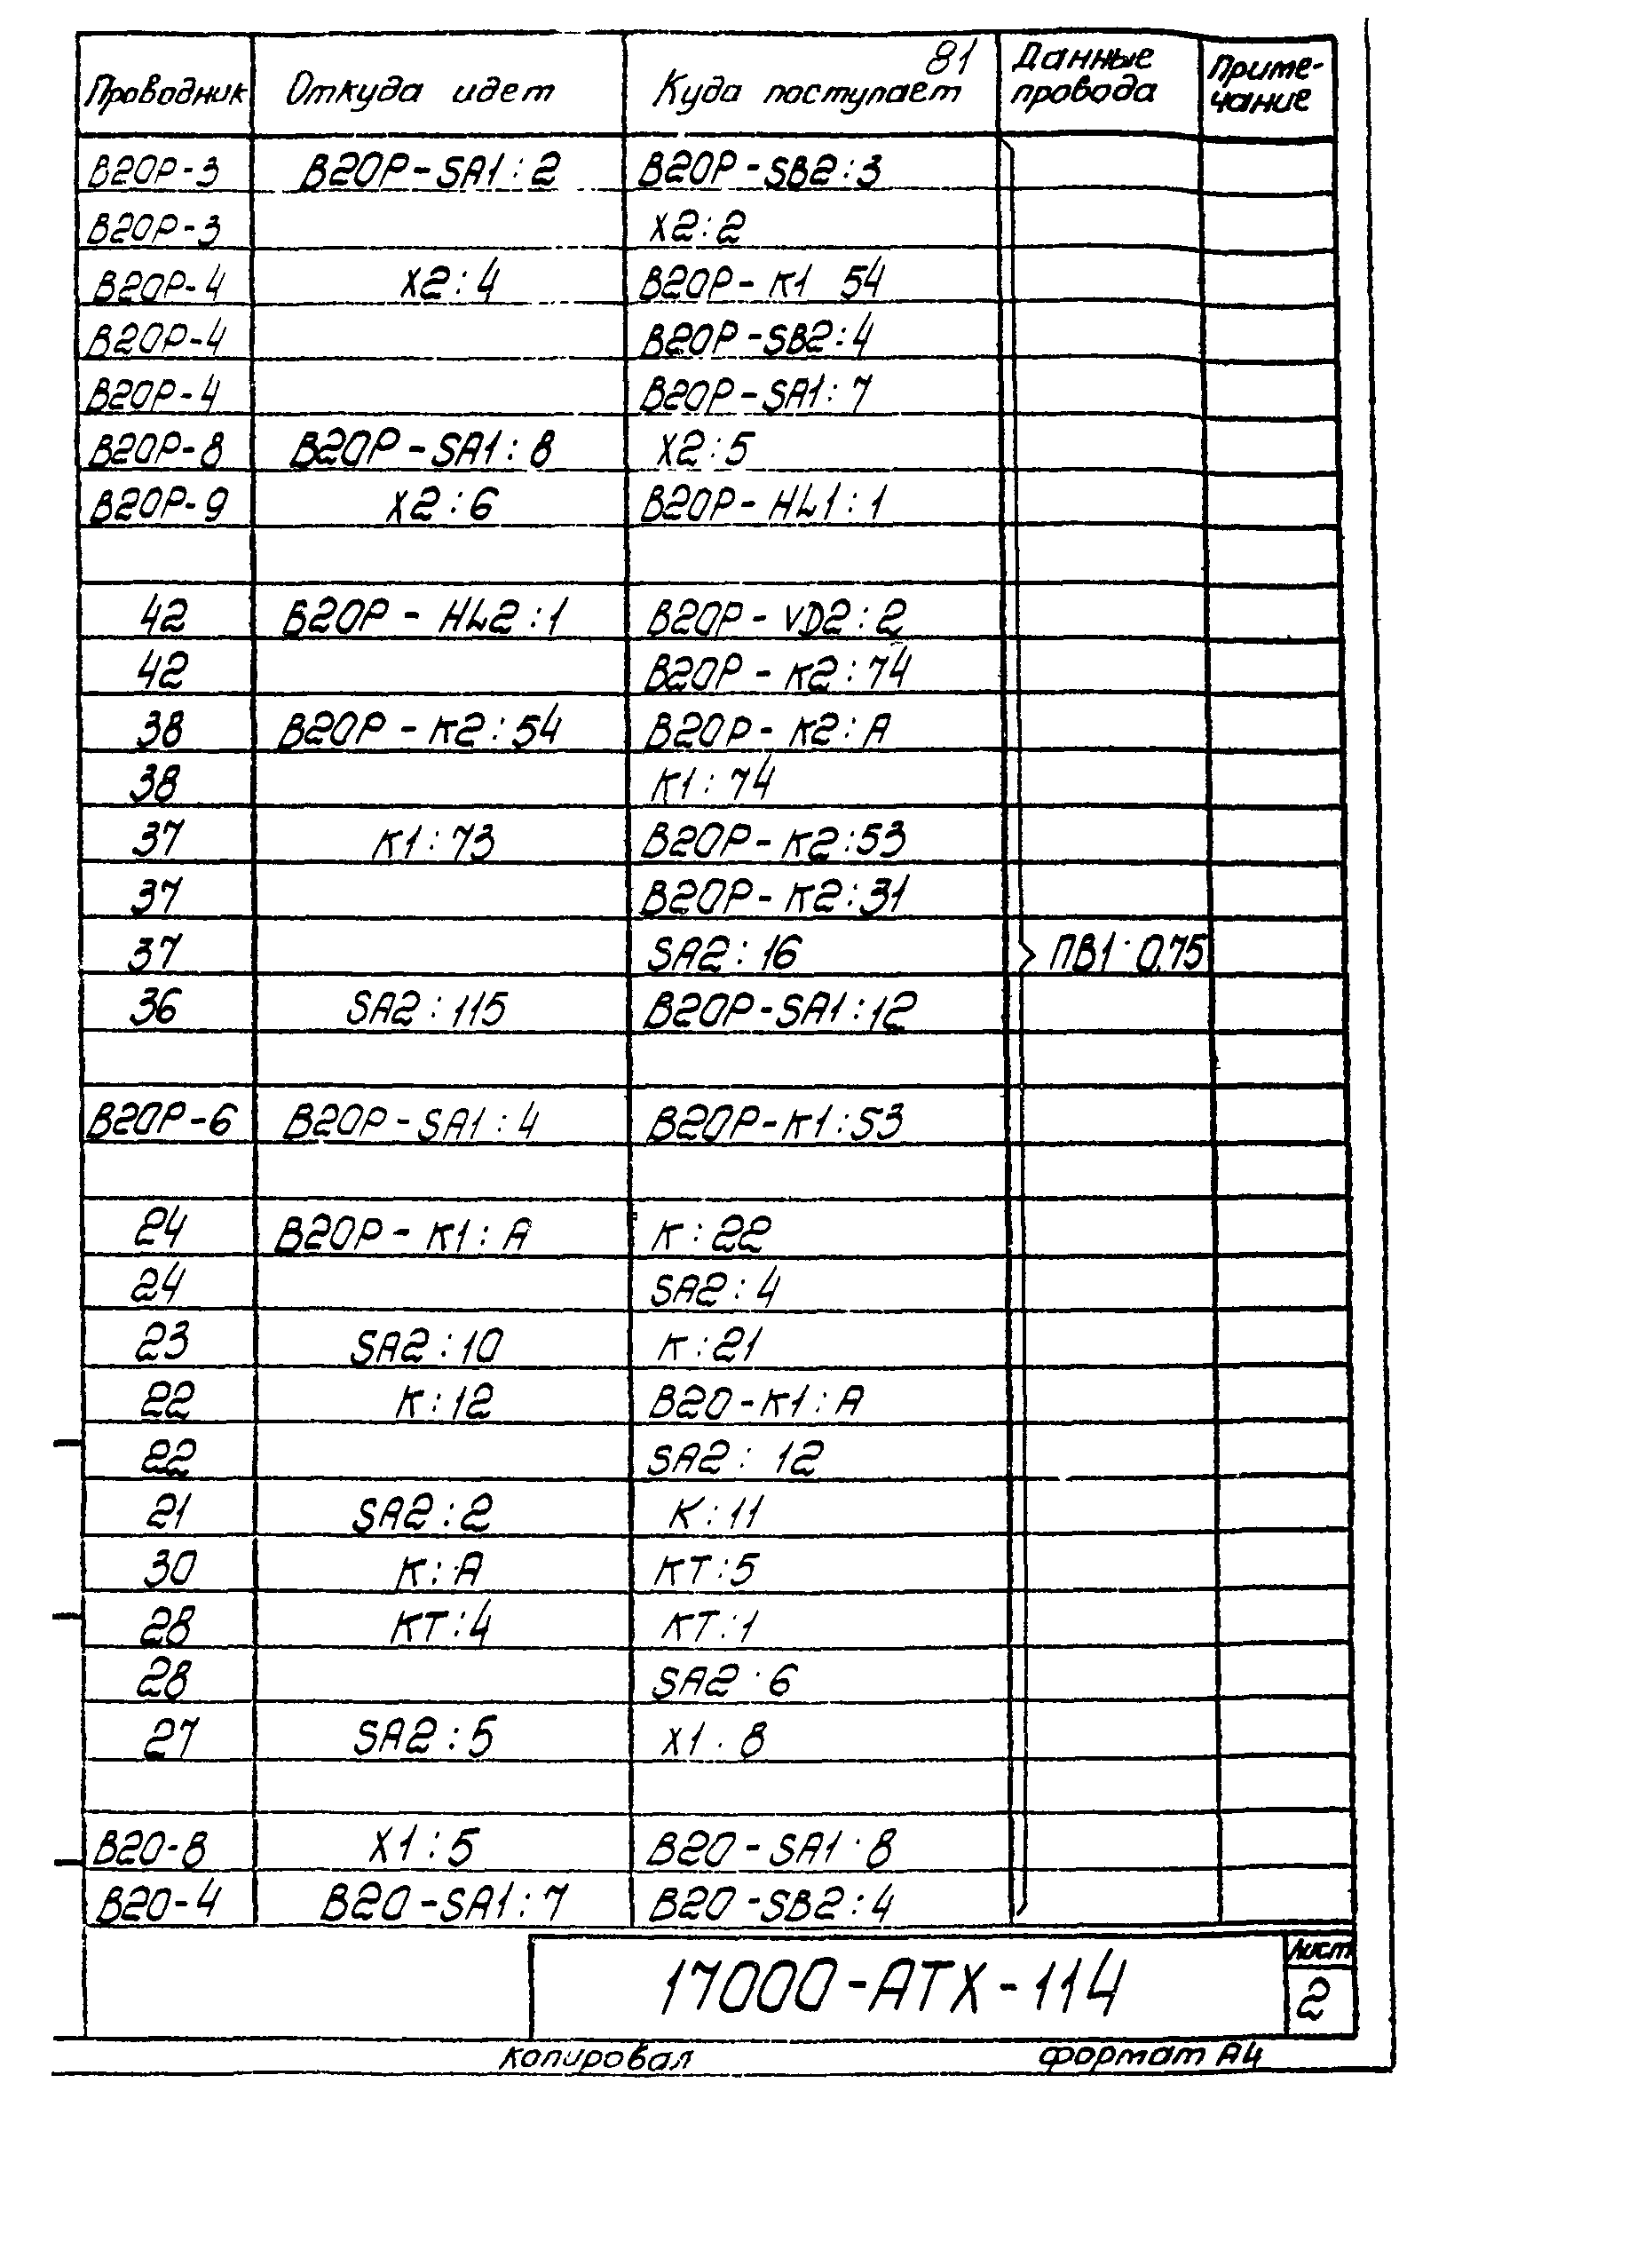 81
Проводник Откуда идет Куда поступает Данные провода Приме-чание
В20Р-3 В20Р-SA1:2 В20Р-SB2:3
В20Р-3 X2:2
В20Р-4 X2:4 В20Р-К1 54
В20Р-4 В20Р-SB2:4
В20Р-4 В20Р-SA1:7
В20Р-8 В20Р-SA1:8 X2:5
В20Р-9 X2:6 В20Р-HL1:1
42 В20Р-HL2:1 В20Р-VD2:2
42 В20Р-К2:74
38 В20Р-К2:54 В20Р-К2:А
38 К1:74
37 К1:73 В20Р-К2:53
37 В20Р-К2:31
37 SA2:16 ПВ1·0,75
36 SA2:115 В20Р-SA1:12
В20Р-6 В20Р-SA1:4 В20Р-К1:53
24 В20Р-К1:А К:22
24 SA2:4
23 SA2:10 К:21
22 К:12 В20-К1:А
22 SA2:12
21 SA2:2 К:11
30 К:А КТ:5
28 КТ:4 КТ:1
28 SA2·6
27 SA2:5 X1·8
В20-8 X1:5 В20-SA1·8
В20-4 В20-SA1:7 В20-SB2:4
17000-АТХ-114
Лист
2
Копировал Формат А4